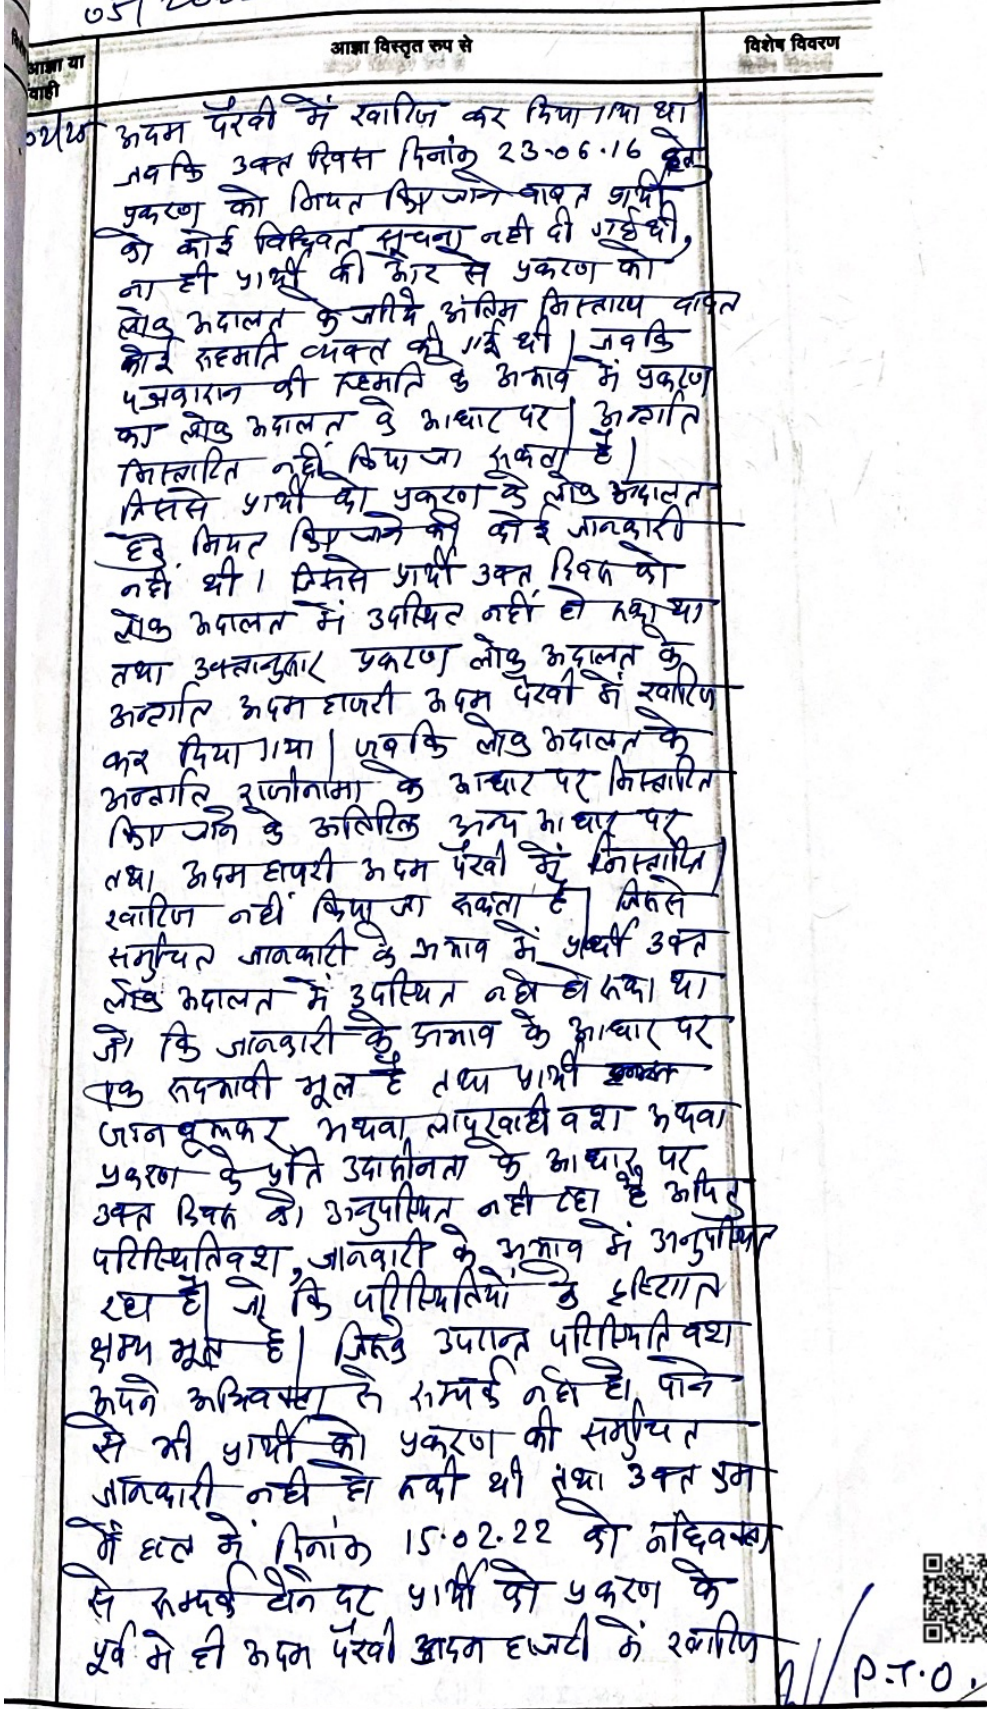 05/
आज्ञा या
वाही
आज्ञा विस्तृत रुप से
विशेष विवरण
अदम पैरवी में खारिज कर दिया गया था।
जबकि उक्त दिवस दिनांक 23.06.16 हेतु
प्रकरण को नियत किए जाने बाबत प्रार्थी
को कोई विधिवत सूचना नही दी गई थी,
ना ही प्रार्थी की ओर से प्रकरण को
लोक अदालत के जरिये अंतिम निस्तारण बाबत
कोई सहमति व्यक्त की गई थी। जबकि
पक्षकारान की सहमति के अभाव में प्रकरण
का लोक अदालत के आधार पर अन्तर्गत
निस्तारित नहीं किया जा सकता है।
जिससे प्रार्थी को प्रकरण के लोक अदालत
हेतु नियत किए जाने की कोई जानकारी
नही थी। जिससे प्रार्थी उक्त दिवस को
लोक अदालत में उपस्थित नहीं हो सका था
तथा उक्तानुसार प्रकरण लोक अदालत के
अन्तर्गत अदम हाजरी अदम पैरवी में खारिज
कर दिया गया। जबकि लोक अदालत के
अन्तर्गत राजीनामा के आधार पर निस्तारित
किए जाने के अतिरिक्त अन्य आधार पर
तथा अदम हाजरी अदम पैरवी में निस्तारित/
खारिज नहीं किया जा सकता है। जिससे
समुचित जानकारी के अभाव में प्रार्थी उक्त
लोक अदालत में उपस्थित नही हो सका था
जो कि जानकारी के अभाव के आधार पर
एक सदभावी भूल है तथा प्रार्थी
जानबूझकर अथवा लापरवाही वश अथवा
प्रकरण के प्रति उदासीनता के आधार पर
उक्त दिवस को अनुपस्थित नही रहा है अपितु
परिस्थितिवश, जानकारी के अभाव में अनुपस्थित
रहा है। जो कि परिस्थितियों के दृष्टिगत
क्षम्य भूल है। जिसके उपरान्त परिस्थिति वश
अपने अधिवक्ता से सम्पर्क नही हो पाने
से भी प्रार्थी को प्रकरण की समुचित
जानकारी नही हो सकी थी तथा उक्त क्रम
में हाल में दिनांक 15.02.22 को अधिवक्ता
से सम्पर्क होने पर प्रार्थी को प्रकरण के
पूर्व मे ही अदम पैरवी अदम हाजरी में खारिज
P.T.O.